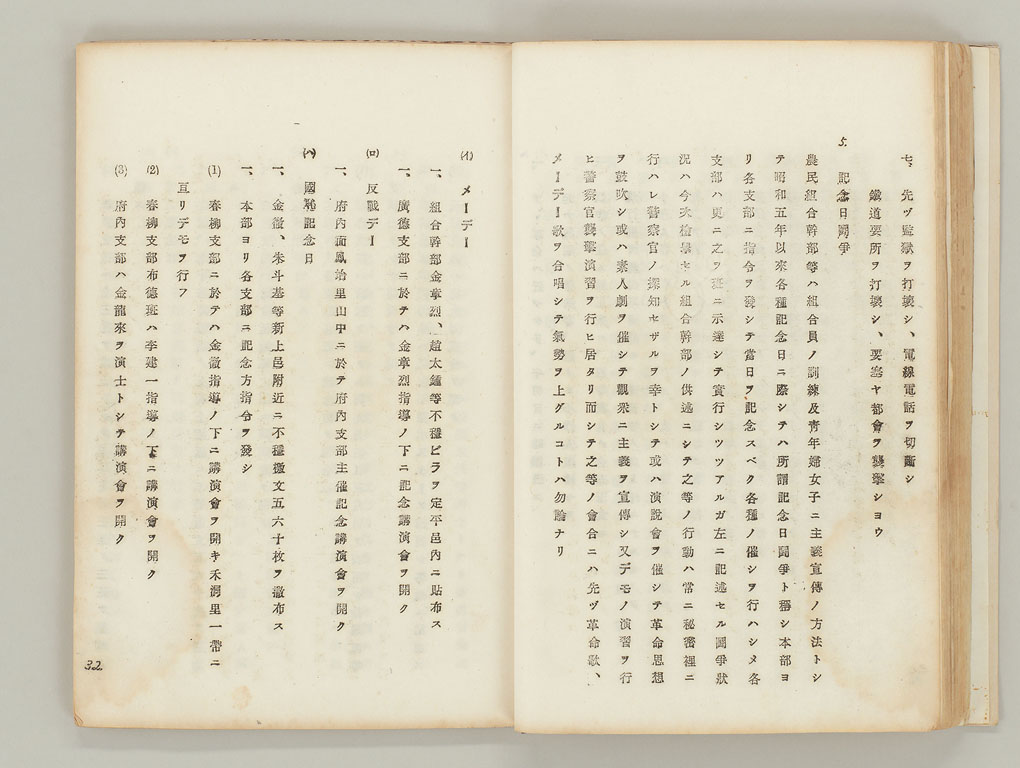 七、先ヅ監獄ヲ打壊シ、電線電話ヲ切斷シ
鐵道要所ヲ打壊シ、要塞ヤ都會ヲ襲撃シヨウ
5. 記念日鬪爭
農民組合幹部等ハ組合員ノ訓練及靑年婦女子ニ主義宣傳ノ方法トシ
テ昭和五年以來各種記念日ニ際シテハ所謂記念日鬪爭ト稱シ本部ヨ
リ各支部ニ指令ヲ發シテ當日ヲ記念スベク各種ノ催シヲ行ハシメ各
支部ハ更ニ之ヲ班ニ示達シテ實行シツツアルガ左ニ記述セル鬪爭狀
況ハ今次檢擧セル組合幹部ノ供述ニシテ之等ノ行動ハ常ニ秘密裡ニ
行ハレ警察官ノ探知セザルヲ幸トシテ或ハ演說會ヲ催シテ革命思想
ヲ鼓吹シ或ハ素人劇ヲ催シテ觀衆ニ主義ヲ宣傳シ又デモノ演習ヲ行
ヒ警察官襲擊演習ヲ行ヒ居タリ而シテ之等ノ會合ニハ先ヅ革命歌、
メーデー歌ヲ合唱シテ氣勢ヲ上グルコトハ勿論ナリ
(イ) メーデー
一、組合幹部金章烈、趙太鏞等不穩ビラヲ定平邑內ニ貼布ス
一、廣德支部ニ於テハ金章烈指導ノ下ニ記念講演會ヲ開ク
(ロ) 反戰デー
一、府內面鳳治里山中ニ於テ府內支部主催記念講演會ヲ開ク
(ハ) 國恥記念日
一、金徵、朱斗基等新上邑附近ニ不穩檄文五六十枚ヲ撒布ス
一、本部ヨリ各支部ニ記念方指令ヲ發シ
(1) 春柳支部ニ於テハ金徵指導ノ下ニ講演會ヲ開キ禾洞里一帶ニ
亘リデモヲ行フ
(2) 春柳支部布德班ハ李建一指導ノ下ニ講演會ヲ開ク
(3) 府內支部ハ金龍來ヲ演士トシテ講演會ヲ開ク
32